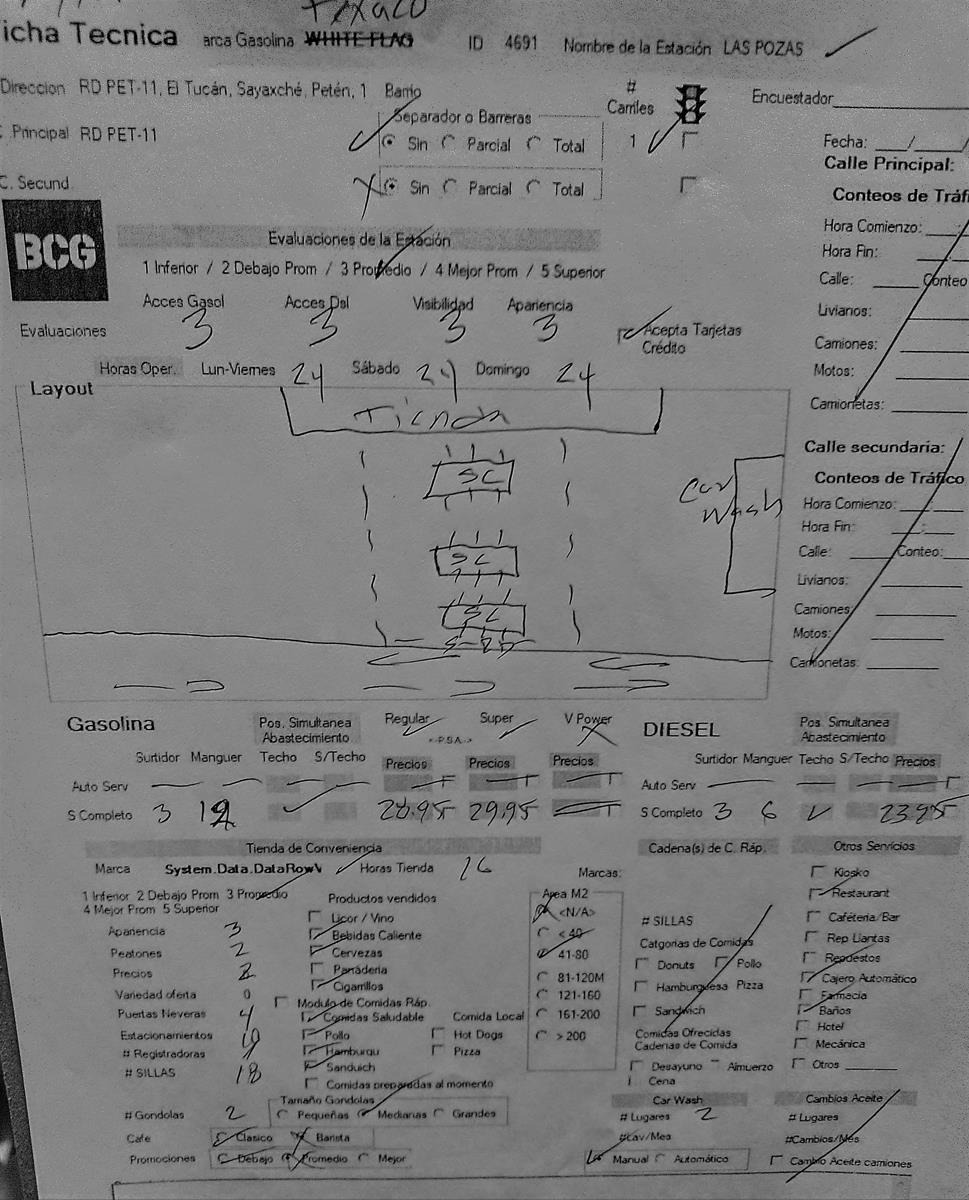 Texaco
icha Tecnica arca Gasolina WHITE FLAG ID 4691 Nombre de la Estación LAS POZAS
Direccion RD PET-11, El Tucán, Sayaxché, Petén, 1 Barrio # Carriles Encuestador
Separador o Barreras
Principal RD PET-11 Sin Parcial Total 1 Fecha: __/__/
Calle Principal:
C. Secund. Sin Parcial Total
Conteos de Tráfi
BCG
Evaluaciones de la Estación Hora Comienzo:
Hora Fin:
1 Inferior / 2 Debajo Prom / 3 Promedio / 4 Mejor Prom / 5 Superior
Calle: Conteo
Acces Gasol Acces Dsl Visibilidad Apariencia
Livianos:
Evaluaciones 3 3 3 3 Acepta Tarjetas Crédito
Camiones:
Horas Oper. Lun-Viernes 24 Sábado 24 Domingo 24
Motos:
Layout
Camionetas:
Tienda
Calle secundaria:
SC
Conteos de Tráfico
Car Wash
Hora Comienzo:
Hora Fin:
SC
Calle: Conteo:
Livianos:
SC
Camiones:
Motos:
Camionetas:
Gasolina Pos. Simultanea Abastecimiento Regular Super V Power DIESEL Pos. Simultanea Abastecimiento
<-P.S.A.->
Surtidor Manguer Techo S/Techo Precios Precios Precios Surtidor Manguer Techo S/Techo Precios
Auto Serv Auto Serv
S Completo 3 28.95 29.95 S Completo 3 6 23.95
Tienda de Conveniencia Cadena(s) de C. Ráp. Otros Servicios
Marca System.Data.DataRowV Horas Tienda 16 Marcas: Kiosko
1 Inferior 2 Debajo Prom 3 Promedio Productos vendidos Area M2 Restaurant
4 Mejor Prom 5 Superior Licor / Vino <N/A> # SILLAS Cafeteria/Bar
Apariencia 3 Bebidas Caliente < 40 Rep Llantas
Peatones 2 Cervezas 41-80 Catgorias de Comidas Repuestos
Precios 2 Panaderia 81-120M Donuts Pollo Cajero Automático
Variedad oferta 0 Cigarrillos 121-160 Hamburguesa Pizza Farmacia
Puertas Neveras 4 Modulo de Comidas Ráp. 161-200 Sandwich Baños
Comidas Saludable Comida Local
Estacionamientos Pollo Hot Dogs > 200 Comidas Ofrecidas Hotel
# Registradoras Hamburgu Pizza Cadenas de Comida Mecánica
# SILLAS 18 Sanduich Desayuno Almuerzo Otros
Comidas preparadas al momento Cena
Tamaño Gondolas Car Wash Cambios Aceite
# Gondolas 2 Pequeñas Medianas Grandes # Lugares 2 # Lugares
Cafe Clasico Barista #Lav/Mes #Cambios/Mes
Promociones Debajo Promedio Mejor Manual Automático Cambio Aceite camiones